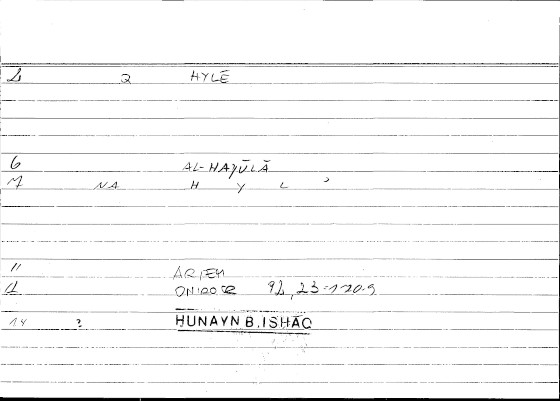 2 Q HYLĒ
6 AL-HAYŪLĀ
7 NA H Y L ʾ
11 ARTEM
ONIROCR 92, 23-120.9
14 ? HUNAYN B. ISHĀQ